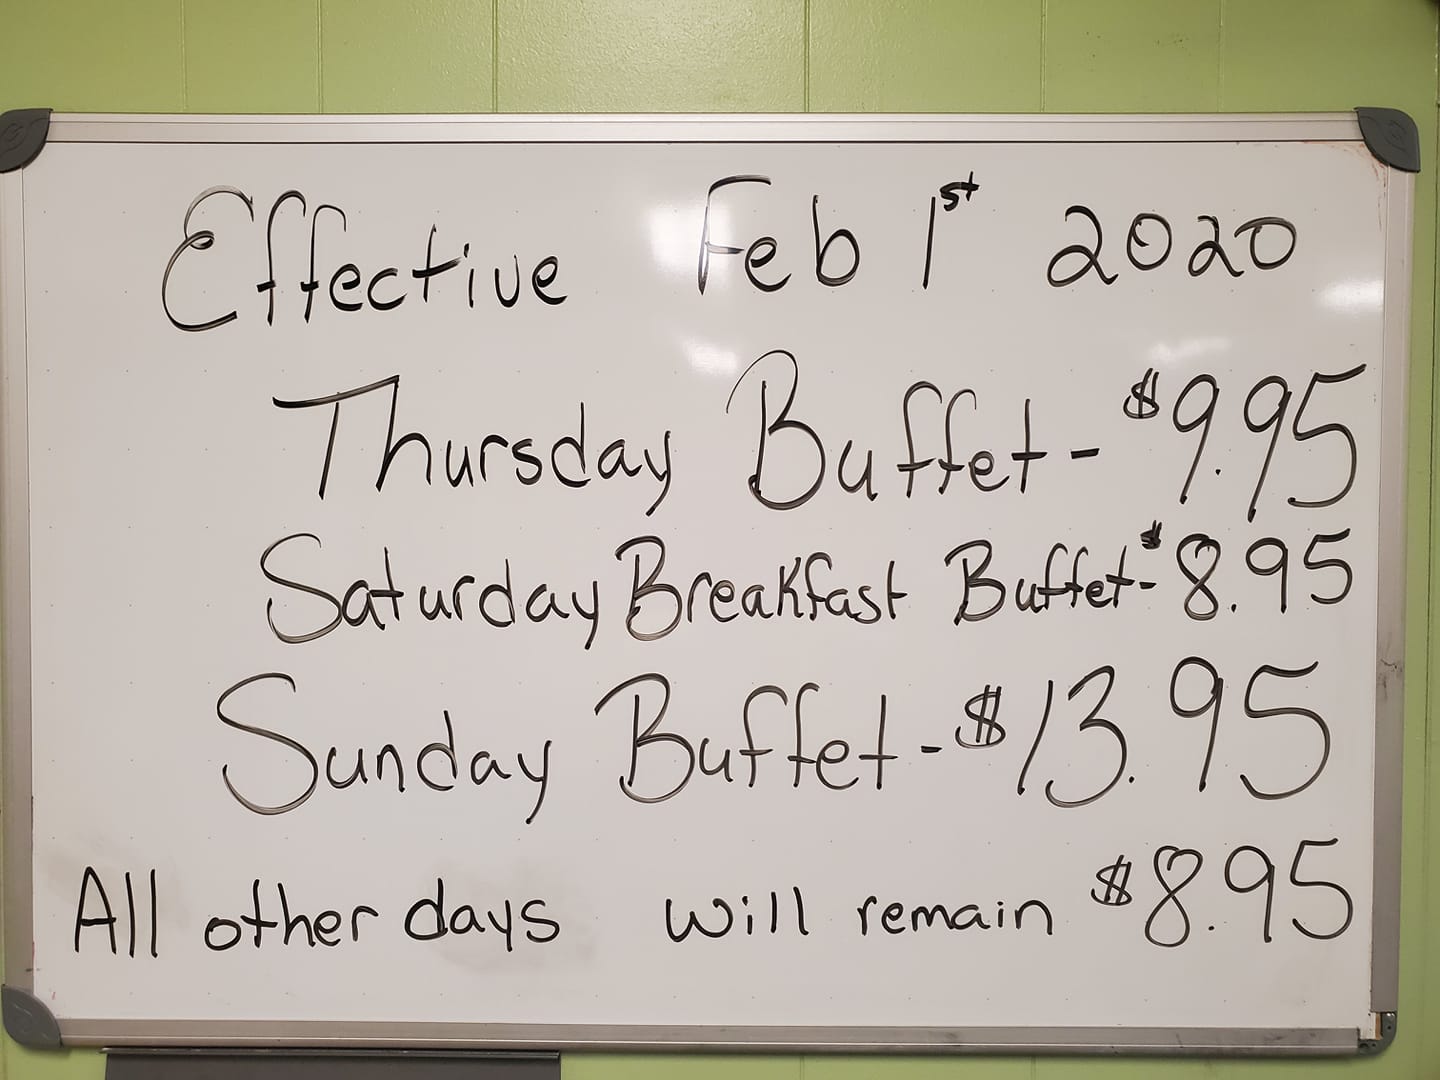 Effective Feb 1st 2020
Thursday Buffet - $9.95
Saturday Breakfast Buffet - $8.95
Sunday Buffet - $13.95
All other days will remain $8.95